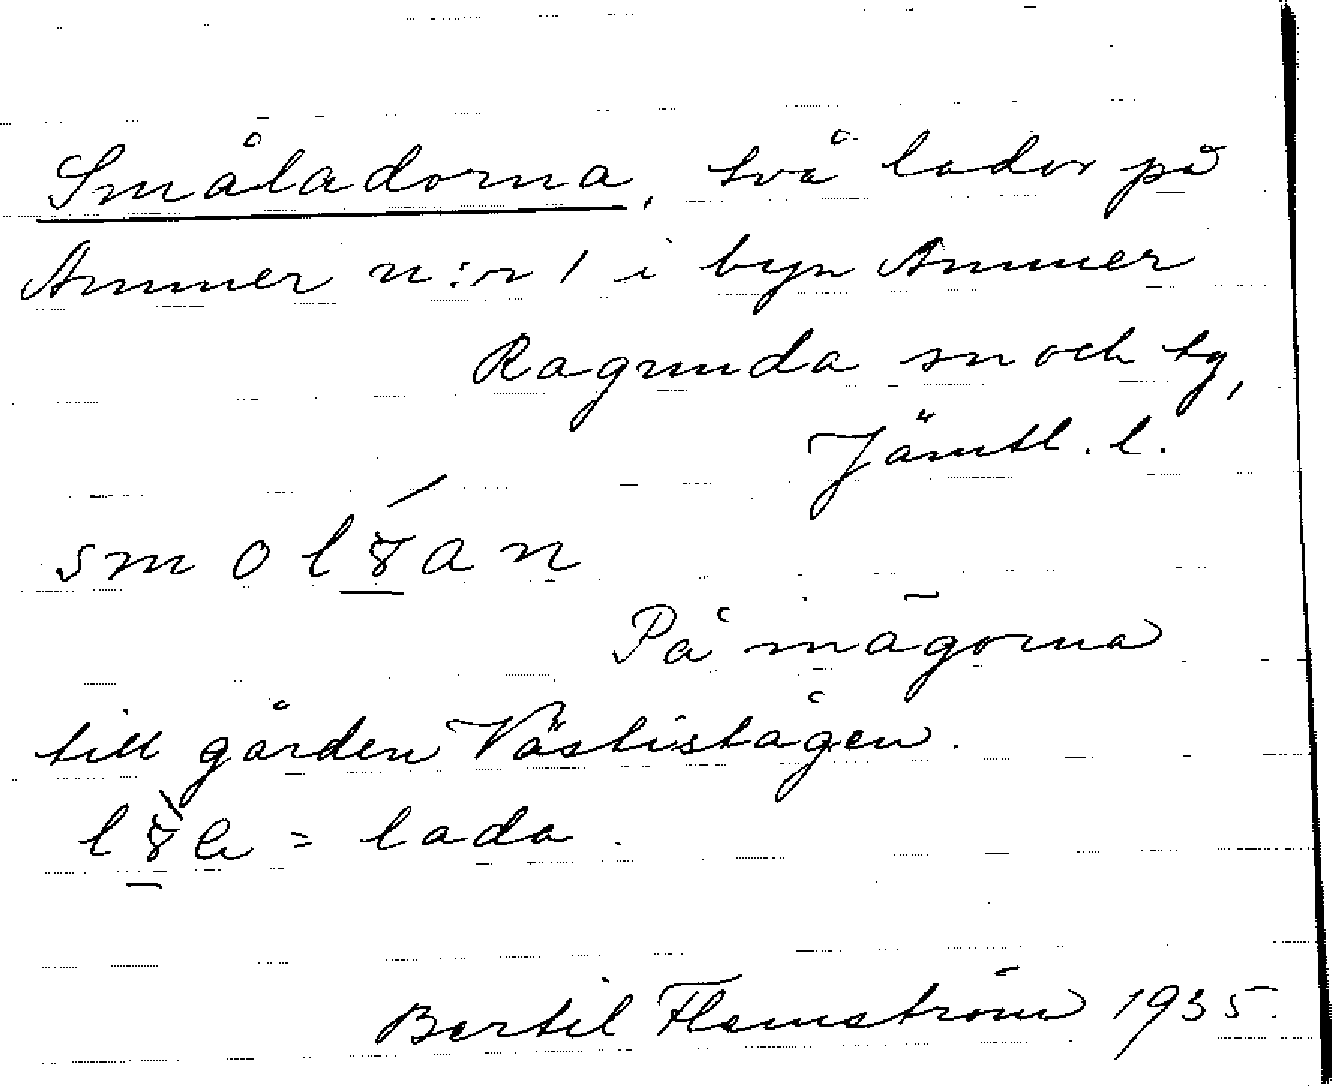 Småladorna, två lador på
Ammer n:r 1 i byn Ammer
Ragunda sn och tg,
Jämtl. l.
På mägorna
till gården Västistågen.
= lada.
Bertil Flemström 1935.